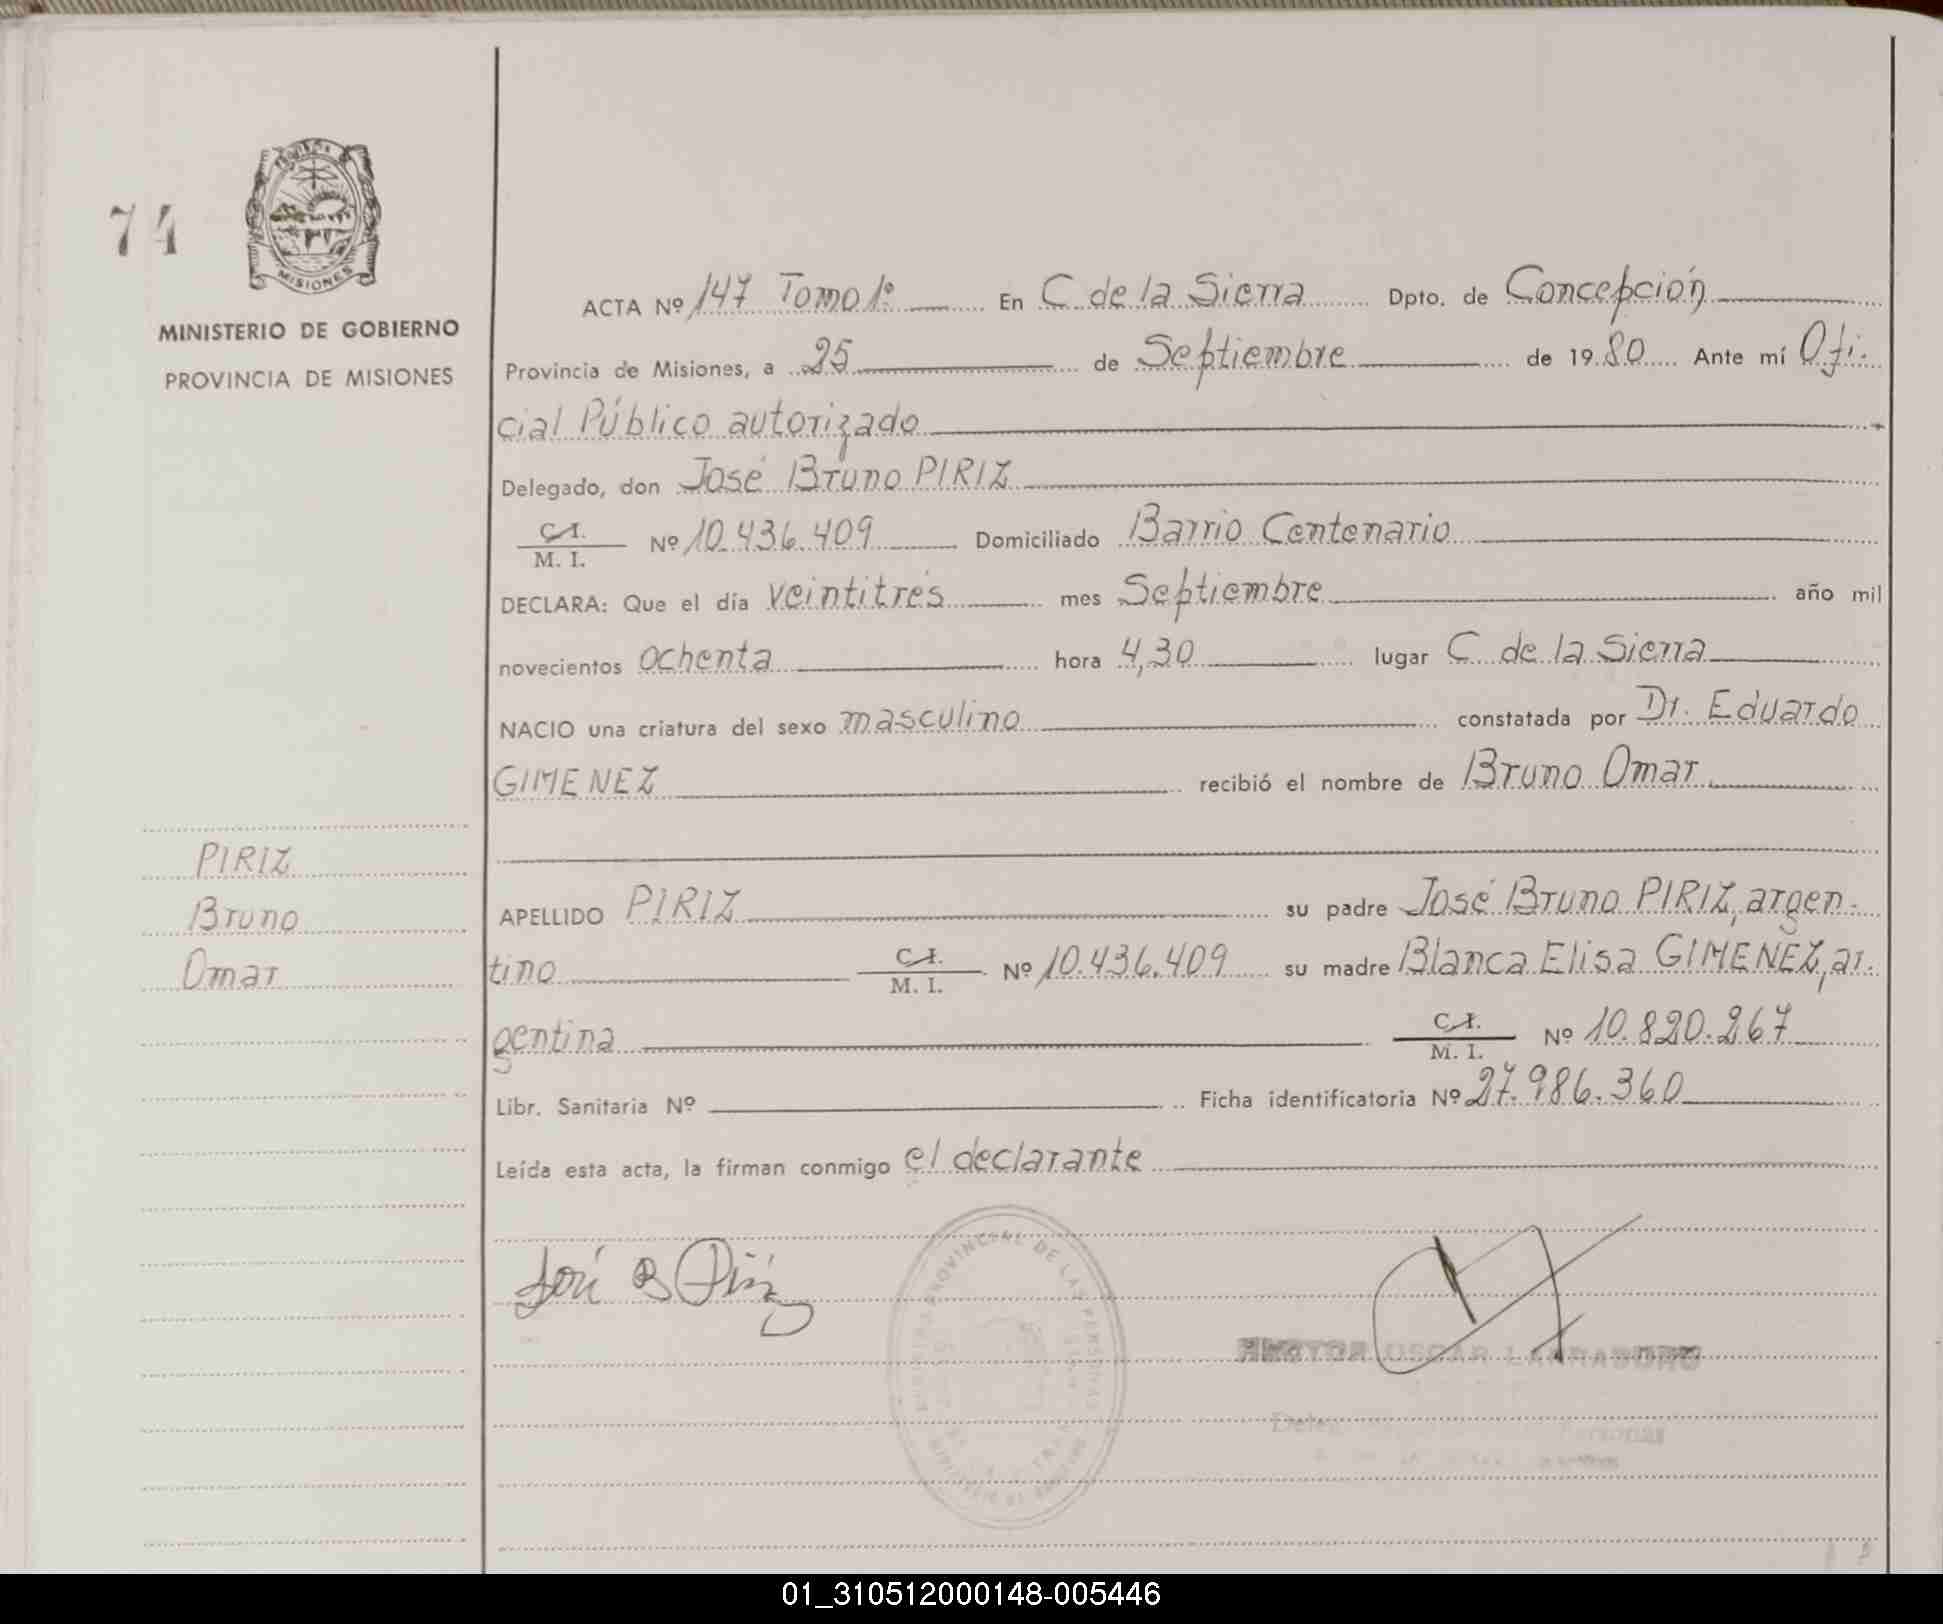 74
MISIONES
MINISTERIO DE GOBIERNO
PROVINCIA DE MISIONES
PIRIZ
Bruno
Omar
ACTA Nº 147 Tomo 1º En C de la Sierra Dpto. de Concepción
Provincia de Misiones, a 25 de Septiembre de 1980 Ante mí Ofi-
cial Público autorizado
Delegado, don José Bruno PIRIZ
C.I.
M. I. Nº 10.436.409 Domiciliado Barrio Centenario
DECLARA: Que el día veintitrés mes Septiembre año mil
novecientos ochenta hora 4,30 lugar C de la Sierra
NACIO una criatura del sexo masculino constatada por Dr. Eduardo
GIMENEZ recibió el nombre de Bruno Omar
APELLIDO PIRIZ su padre José Bruno PIRIZ, argen-
tino C.I. M. I. Nº 10.436.409 su madre Blanca Elisa GIMENEZ, ar-
gentina C.I. M. I. Nº 10.820.267
Libr. Sanitaria Nº Ficha identificatoria Nº 27.986.360
Leída esta acta, la firman conmigo el declarante
José B Piriz
PROVINCIAL DE LAS PERSONAS
OSCAR
01_310512000148-005446